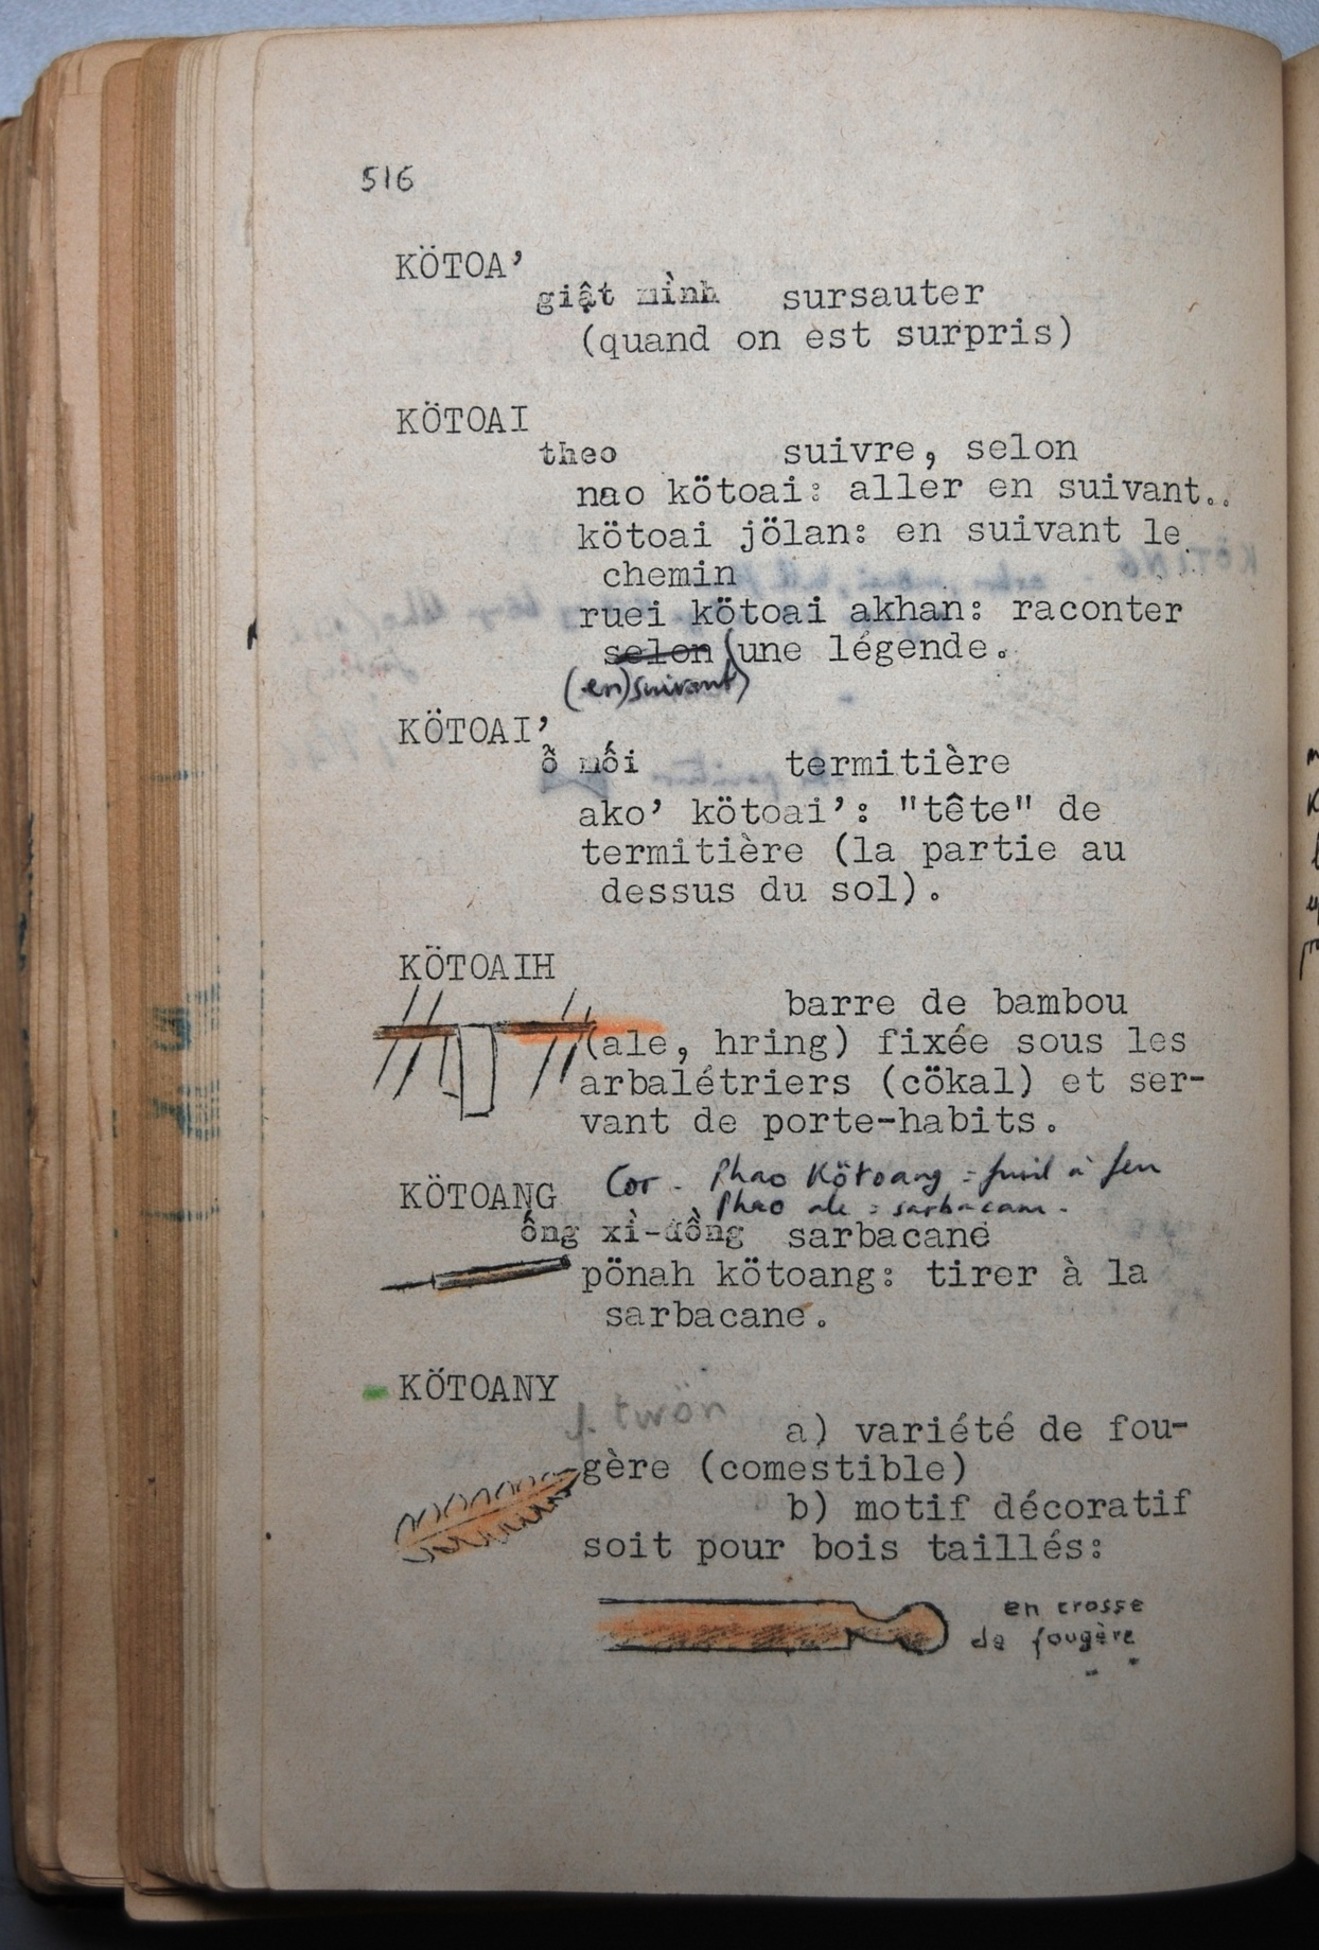 516
KÖTOA’
giật mình sursauter
(quand on est surpris)
KÖTOAI
theo suivre, selon
nao kötoai: aller en suivant..
kötoai jölan: en suivant le
chemin
ruei kötoai akhan: raconter
selon une légende.
(en)suivant)
KÖTOAI’
ổ mối termitière
ako’ kötoai’: "tête" de
termitière (la partie au
dessus du sol).
KÖTOAIH
barre de bambou
(ale, hring) fixée sous les
arbalétriers (cökal) et ser-
vant de porte-habits.
Cor - Phao Kötoang = fusil à feu
KÖTOANG Phao ale = sarbacane.
ống xì-đồng sarbacane
pönah kötoang: tirer à la
sarbacane.
KÖTOANY
J. twön
a) variété de fou-
gère (comestible)
b) motif décoratif
soit pour bois taillés:
en crosse
de fougère